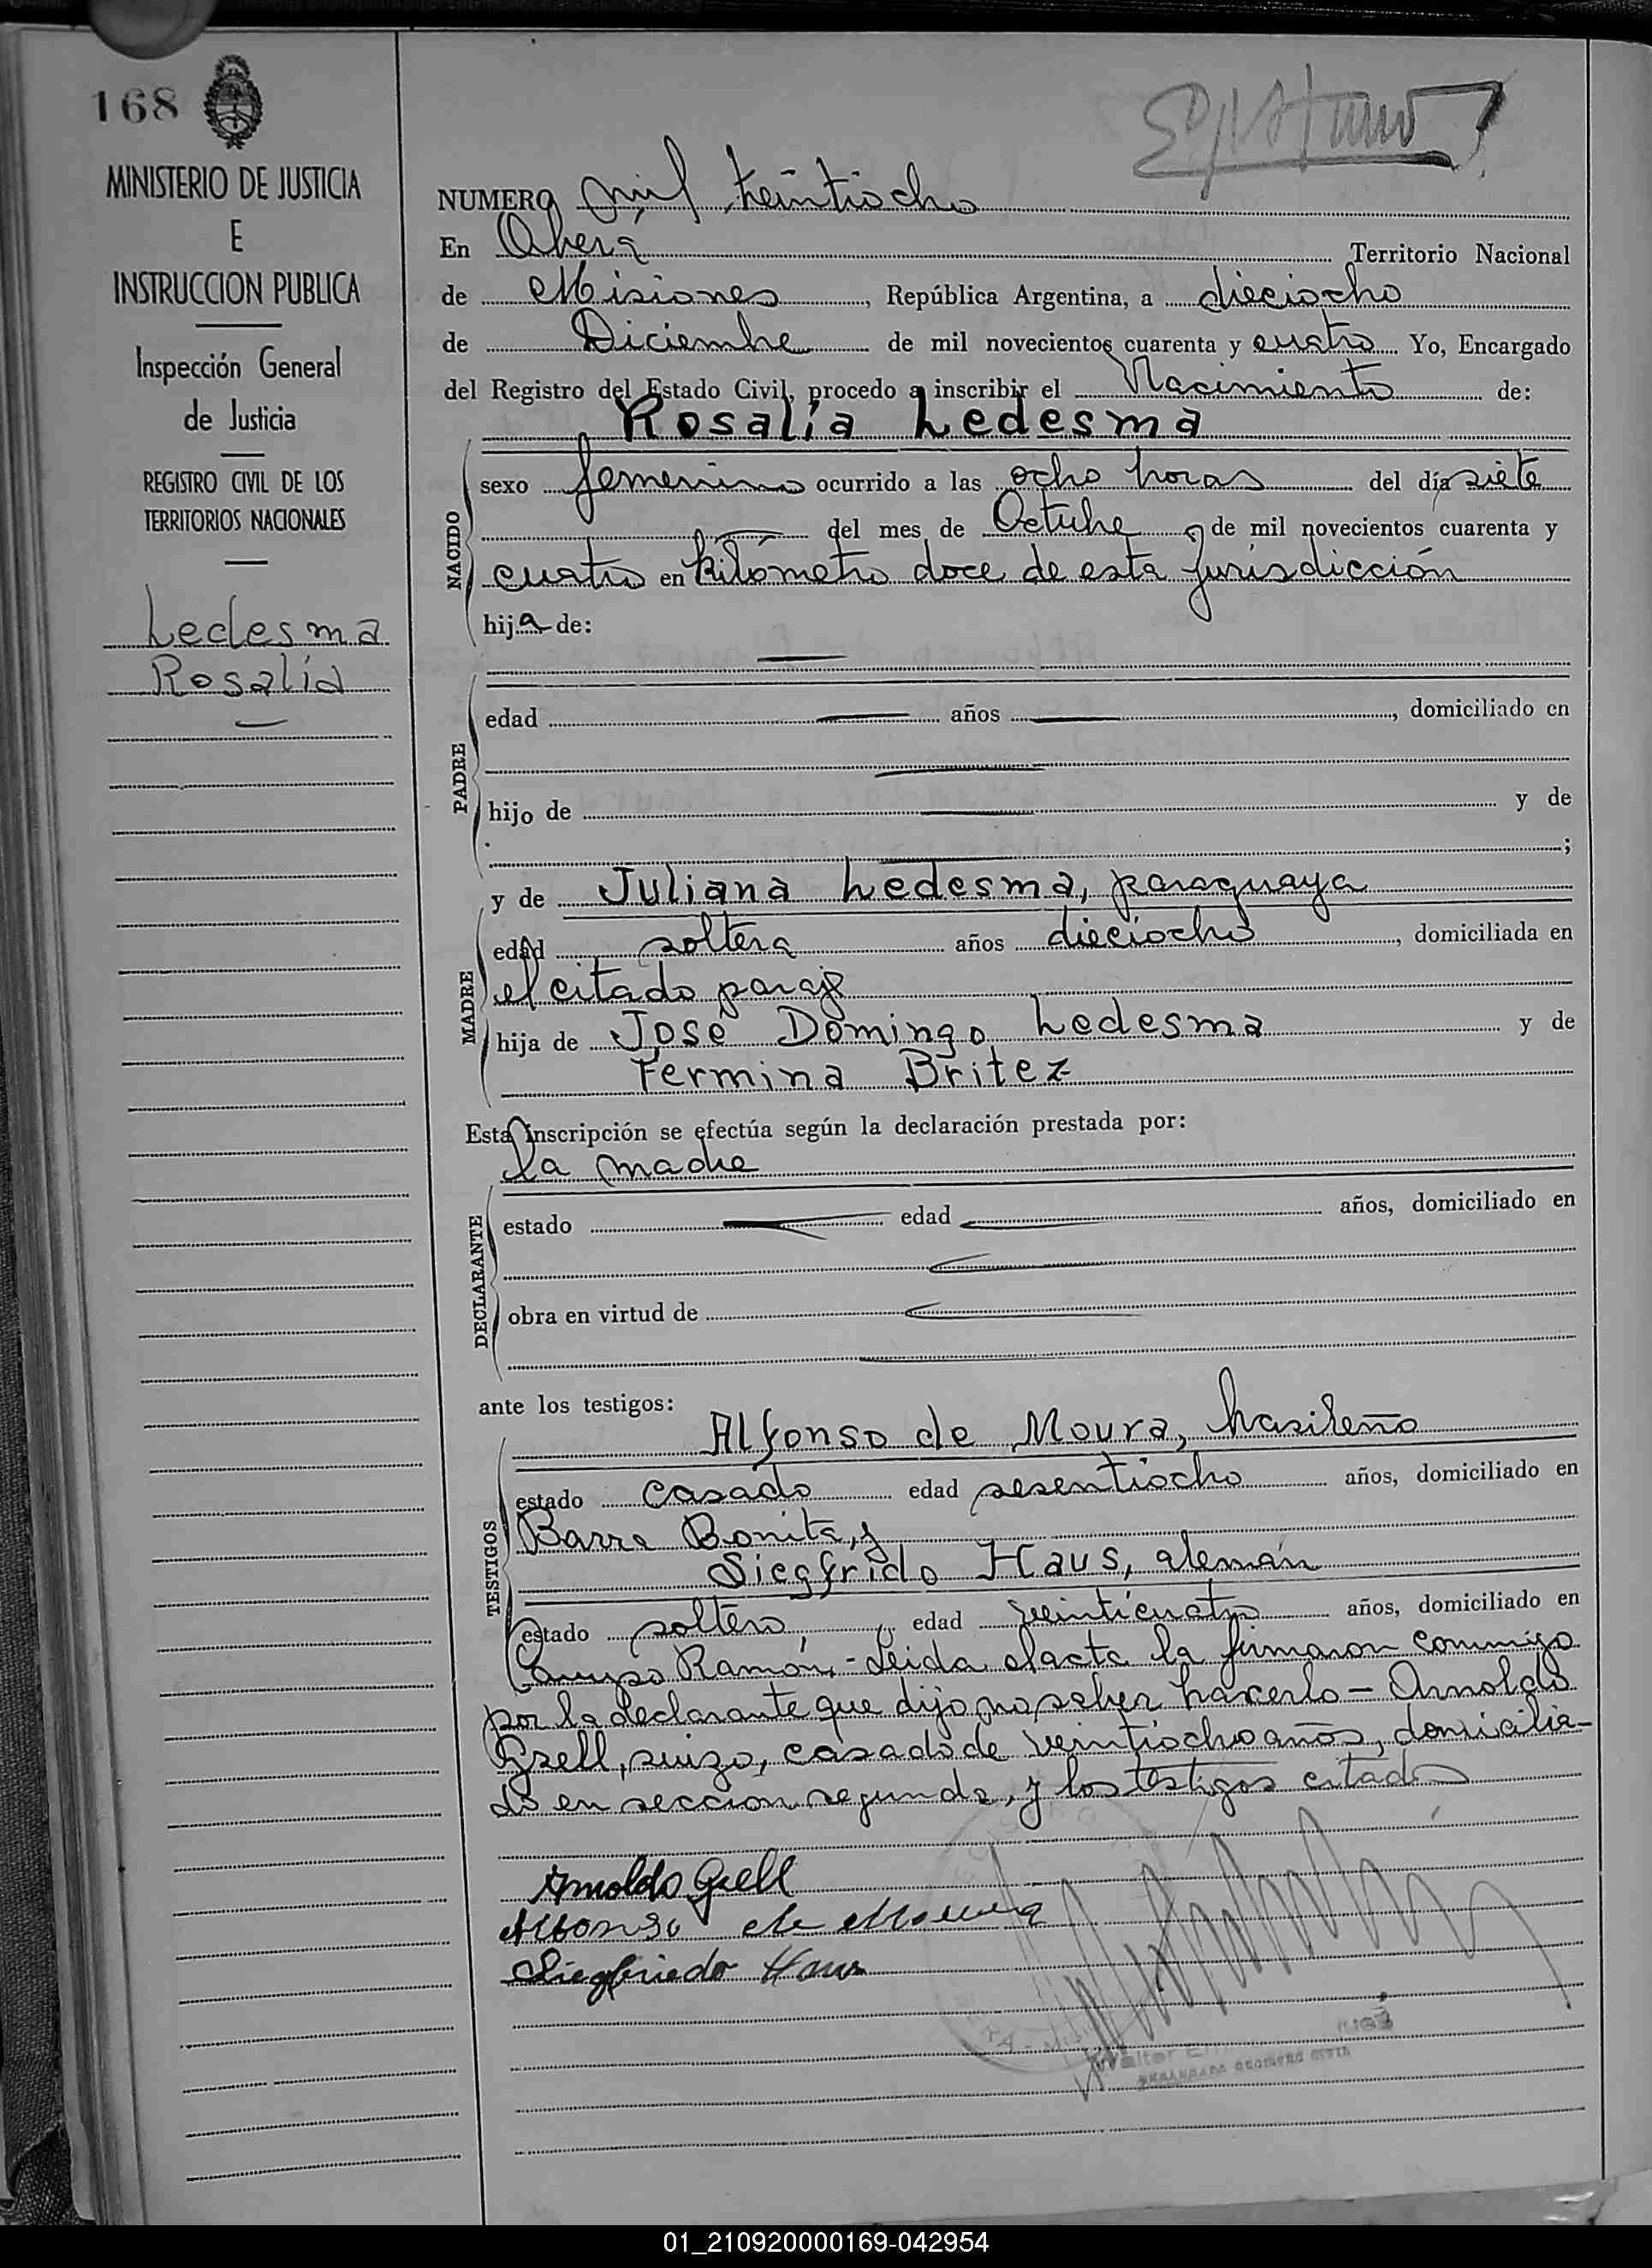 168
MINISTERIO DE JUSTICIA
E
INSTRUCCION PUBLICA
Inspección General
de Justicia
REGISTRO CIVIL DE LOS
TERRITORIOS NACIONALES
Ledesma
Rosalía
NUMERO mil treintiocho
En Oberá Territorio Nacional
de Misiones, República Argentina, a dieciocho
de Diciembre de mil novecientos cuarenta y cuatro Yo, Encargado
del Registro del Estado Civil, procedo a inscribir el Nacimiento de:
Rosalía Ledesma
NACIDO
sexo femenino ocurrido a las ocho horas del día siete
del mes de Octubre de mil novecientos cuarenta y
cuatro en kilómetro doce de esta jurisdicción
hija de:
PADRE
edad años, domiciliado en
hijo de y de
;
y de Juliana Ledesma, paraguaya
MADRE
edad soltera años dieciocho, domiciliada en
el citado paraje
hija de José Domingo Ledesma y de
Fermina Britez
Esta inscripción se efectúa según la declaración prestada por:
la madre
DECLARANTE
estado edad años, domiciliado en
obra en virtud de
ante los testigos:
Alfonso de Moura, brasileño
TESTIGOS
estado casado edad sesentiocho años, domiciliado en
Barra Bonita, y
Siegfrido Haus, alemán
estado soltero, edad veinticuatro años, domiciliado en
Campo Ramón.- Leida el acta la firmaron conmigo
por la declarante que dijo no saber hacerlo - Arnoldo
Gsell, suizo, casado de veintiocho años, domicilia-
do en seccion segunda, y los testigos citados
Arnoldo Gsell
Alfonso de Moura
Siegfriedo Haus
01_210920000169-042954